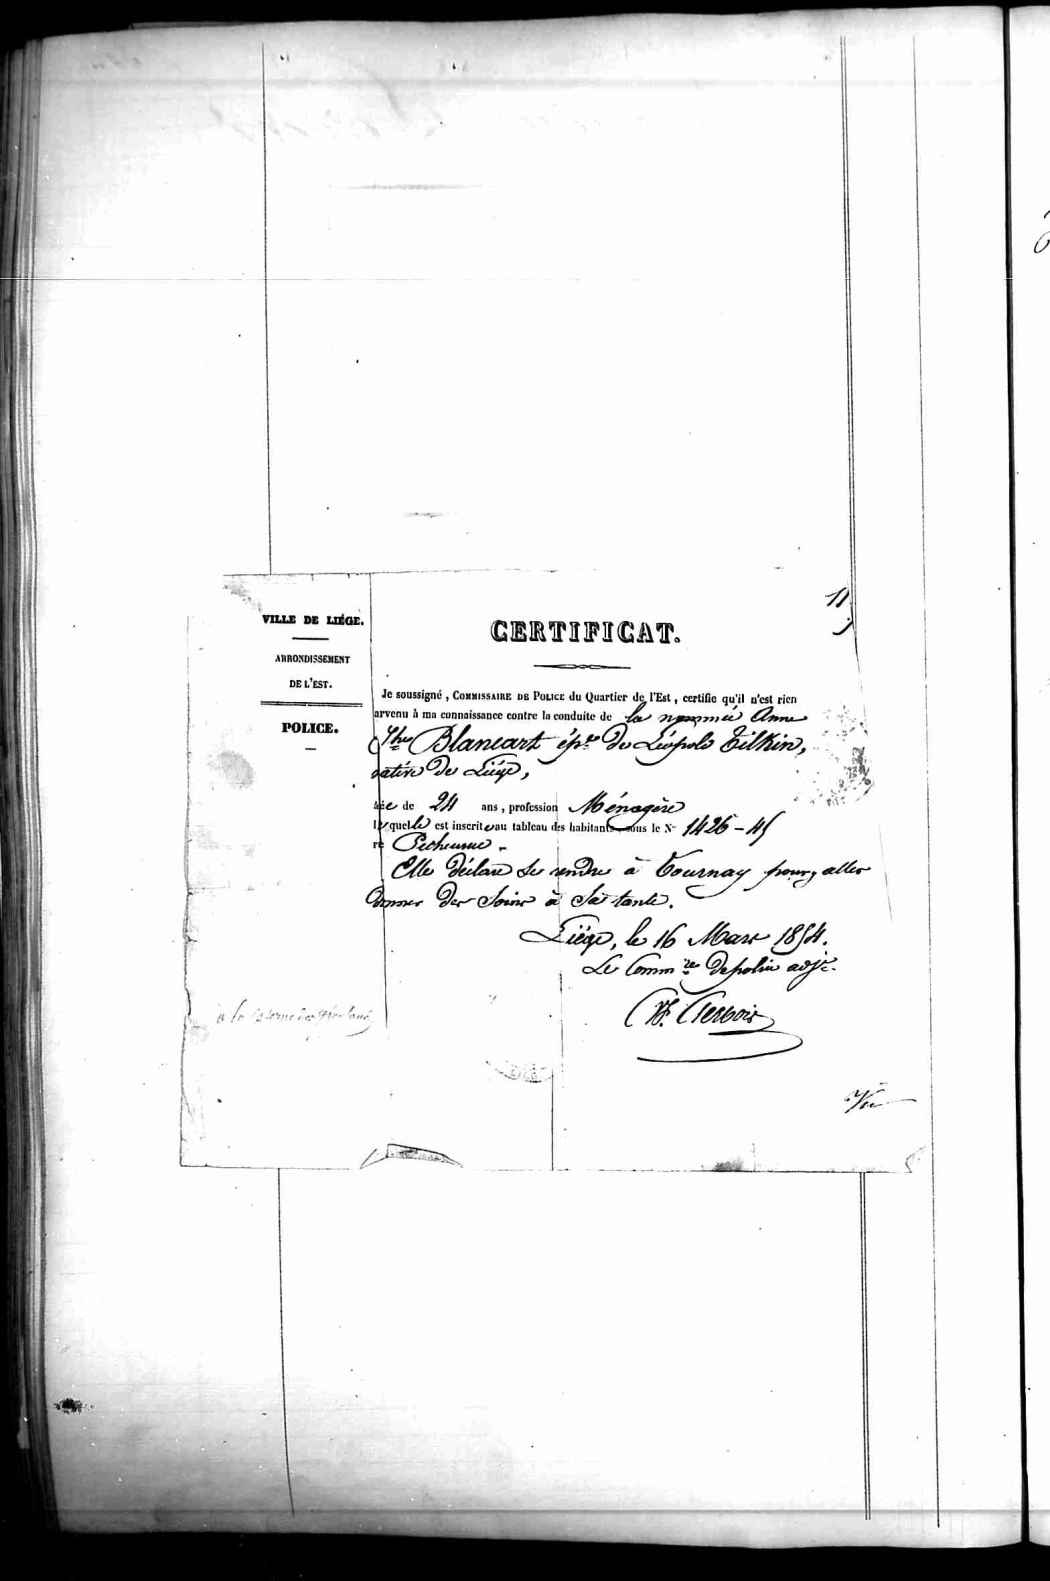 11
VILLE DE LIÉGE.
ARRONDISSEMENT
DE L'EST.
POLICE.
CERTIFICAT.
Je soussigné, COMMISSAIRE DE POLICE du Quartier de l'Est, certifie qu'il n'est rien
arvenu à ma connaissance contre la conduite de la nommée Anne
Jhe Blancart épse de Léopold Tilkin,
native de Liége,
âgée de 24 ans, profession Ménagère
laquelle est inscrite au tableau des habitants sous le No 1426-45
re Pécheurue.
Elle déclare se rendre à Tournay pour y aller
donner des soins à sa tante.
Liége, le 16 Mars 1854.
Le Commre de police adjt.
Gerbois
à la
Vu